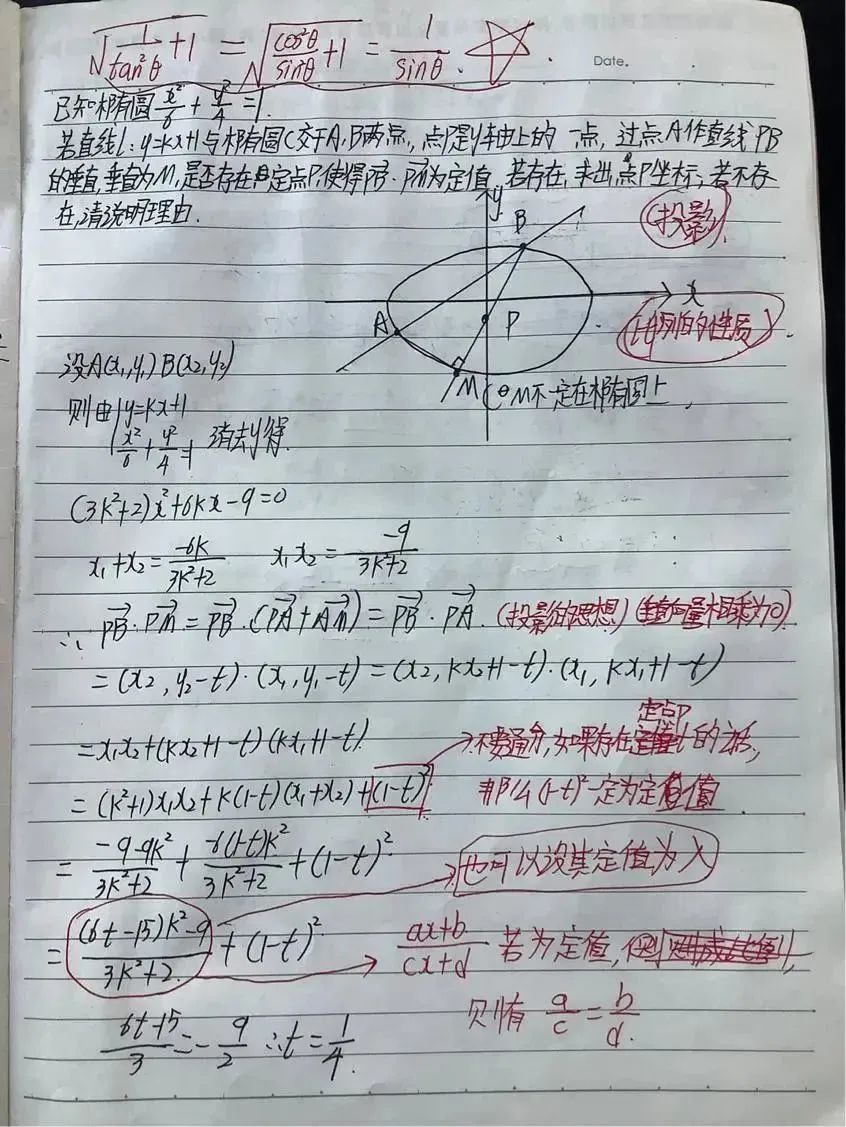 √(1/tan²θ + 1) = √(cos²θ/sin²θ + 1) = 1/sinθ.
Date.
已知椭圆 x²/6 + y²/4 = 1.
若直线l: y=kx+1与椭圆C交于A,B两点, 点P是y轴上的一点, 过点A作直线PB
的垂直,垂直为M,是否存在定点P,使得PB·PM为定值,若存在,求出点P坐标,若不存
在,请说明理由.
(投影)
y
B
x
A
P
(比例的性质)
M (M不一定在椭圆上
设A(x₁,y₁) B(x₂,y₂)
则由{y=kx+1
x²/6 + y²/4 = 1 消去y得
(3k²+2)x²+6kx-9=0
x₁+x₂ = -6k/(3k²+2) x₁x₂ = -9/(3k²+2)
∴ PB·PM = PB·(PA+AM) = PB·PA. (投影的思想) (垂直向量相乘为0)
= (x₂, y₂-t)·(x₁, y₁-t) = (x₂, kx₂+1-t)·(x₁, kx₁+1-t)
= x₁x₂+(kx₂+1-t)(kx₁+1-t)
定点P
不要通分,如果存在的话,
= (k²+1)x₁x₂+k(1-t)(x₁+x₂)+(1-t)²
那么(1-t)²一定为定值
= (-9-9k²)/(3k²+2) + -6(1-t)k²/(3k²+2) + (1-t)²
也可以设其定值为λ
= ((6t-15)k²-9)/(3k²+2) + (1-t)²
(ax+b)/(cx+d) 若为定值,
则有 a/c = b/d.
(6t-15)/3 = -9/2 ∴t = 1/4.